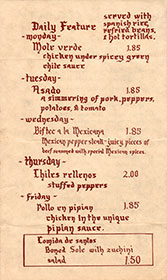 Daily Feature
served with
spanish rice,
refried beans,
2 hot tortillas.
-monday-
Mole verde 1.85
chicken under spicey green
chile sauce
-tuesday-
Asado 1.85
a simmering of pork, peppers,
potatoes, & tomato
-wednesday-
Biftec a la Mexicana 1.85
Mexican pepper steak-juicy pieces of
beef seasoned with special Mexican spices.
-thursday-
Chiles rellenos 2.00
stuffed peppers
-friday-
Pollo en pipian 1.85
chicken in the unique
pipian sauce.
Comida de santos
Boned Sole with zuchini
salad 1.50